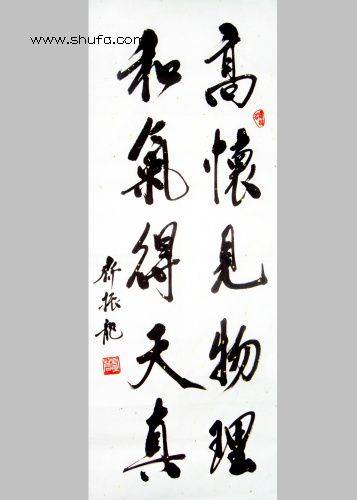 www.shufa.com
高懷見物理
和氣得天真
振龍